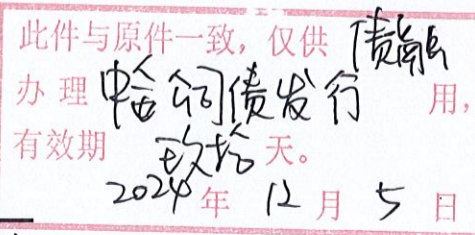 此件与原件一致，仅供 债融
办理 公司债发行 用，
有效期 天。
2024年12月5日